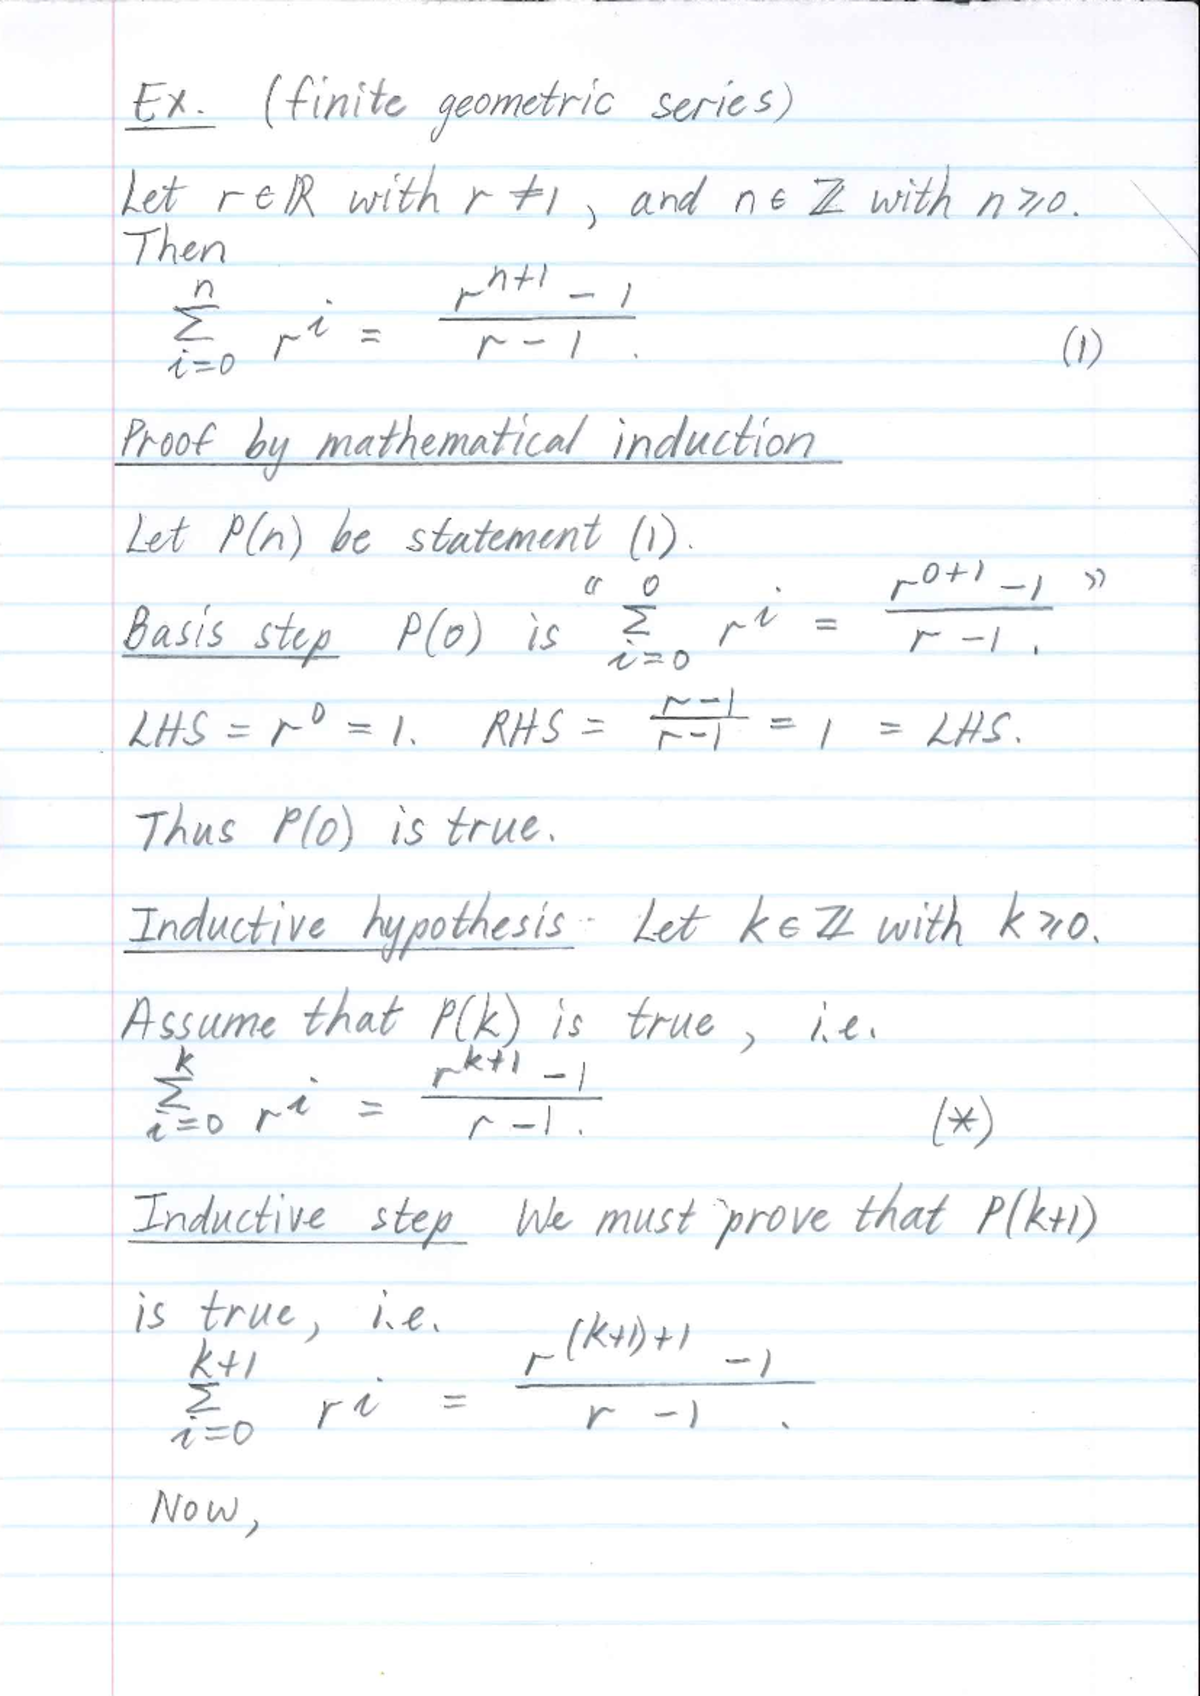 Ex. (finite geometric series)
Let r ∈ ℝ with r ≠ 1, and n ∈ ℤ with n ⩾ 0.
Then
∑_{i=0}^{n} r^i = \frac{r^{n+1} - 1}{r - 1}. (1)
Proof by mathematical induction
Let P(n) be statement (1).
Basis step P(0) is “ ∑_{i=0}^{0} r^i = \frac{r^{0+1} - 1}{r - 1}. ”
LHS = r^0 = 1. RHS = \frac{r-1}{r-1} = 1 = LHS.
Thus P(0) is true.
Inductive hypothesis - Let k ∈ ℤ with k ⩾ 0.
Assume that P(k) is true, i.e.
∑_{i=0}^{k} r^i = \frac{r^{k+1} - 1}{r - 1}. (*)
Inductive step We must prove that P(k+1)
is true, i.e.
∑_{i=0}^{k+1} r^i = \frac{r^{(k+1)+1} - 1}{r - 1}.
Now,